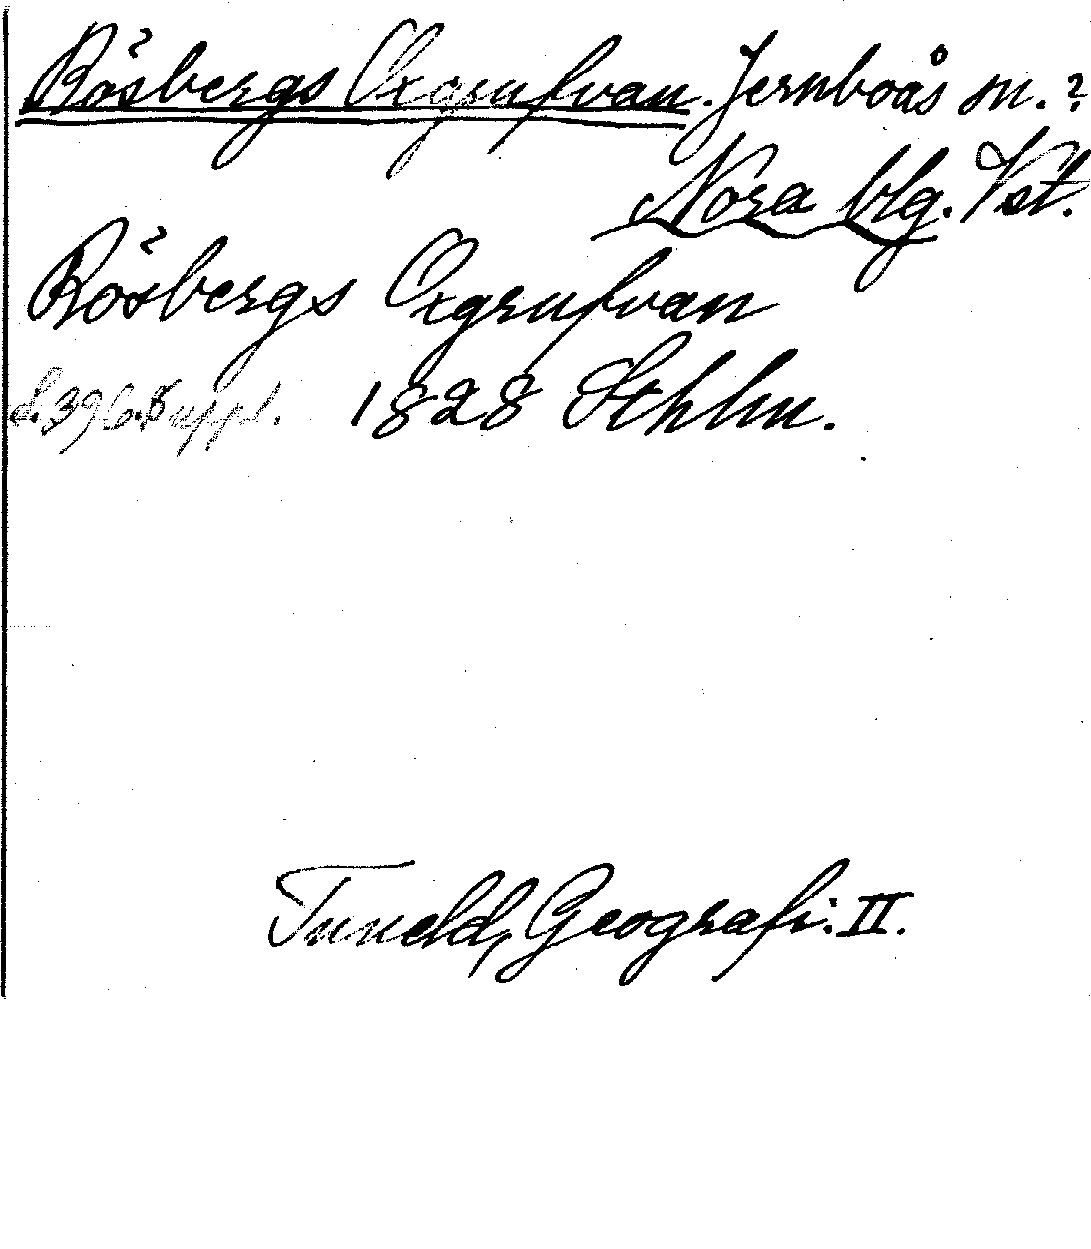 Rösbergs Oxgrufvan. Jernboås sn.?
Nora blg. Vst.
Rösbergs Oxgrufvan
S. 396. 8 uppl. 1828 Sthlm.
Tuneld, Geografi. II.